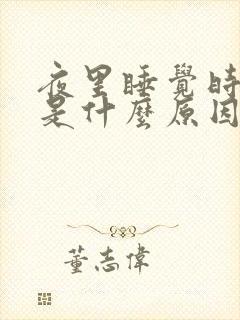 夜里睡覺時
是什麼原因
董志偉